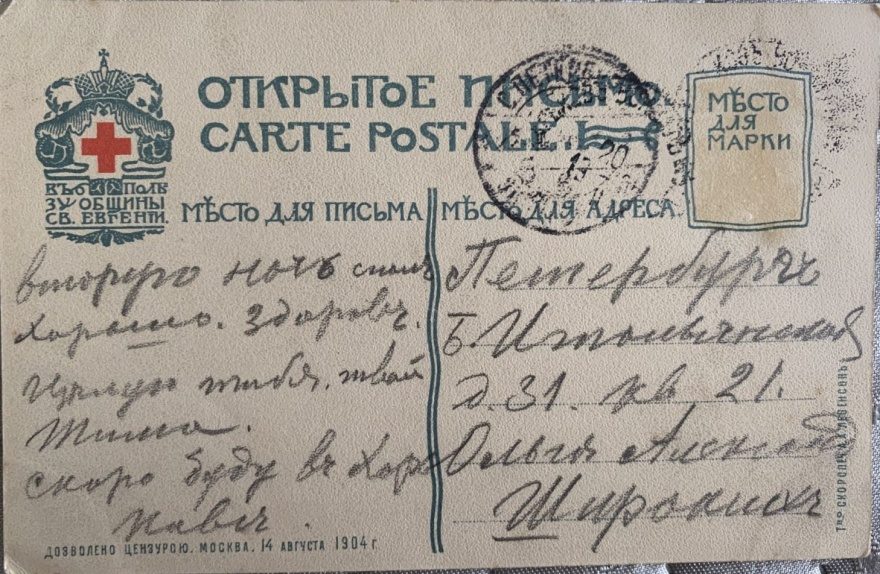 ОТКРЫТОЕ ПИСЬМО.
CARTE POSTALE.
МѢСТО
ДЛЯ
МАРКИ
ВЪ ПОЛЬ
ЗУ ОБЩИНЫ
СВ. ЕВГЕНІИ.
МѢСТО ДЛЯ ПИСЬМА
МѢСТО ДЛЯ АДРЕСА.
20
вторую ночь спалъ
хорошо. Здоровъ.
Цѣлую тибя. твой
Тима.
скоро буду въ Харь
ковѣ.
Петербургъ
Б. Итальянская
д. 31. кв. 21.
Ольгѣ Александ
Широкихъ
ДОЗВОЛЕНО ЦЕНЗУРОЮ. МОСКВА, 14 АВГУСТА 1904 г.
Т-во СКОРОПЕЧ. А.А. ЛЕВЕНСОНЪ